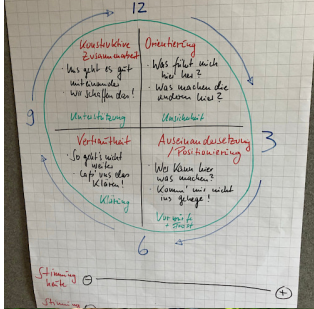 12
Konstruktive
Zusammenarbeit
• Uns geht es gut
miteinander
• Wir schaffen das!
Unterstützung
Orientierung
• Was führt mich
hier her?
• Was machen die
anderen hier?
Unsicherheit
9
3
Vertrautheit
• So geht's nicht
weiter
• Laß' uns das
klären!
Klärung
Auseinandersetzung
/ Positionierung
• Wer kann hier
was machen?
• Komm' mir nicht
ins gehege!
Vorwürfe
6
Stimmung
heute
-
+